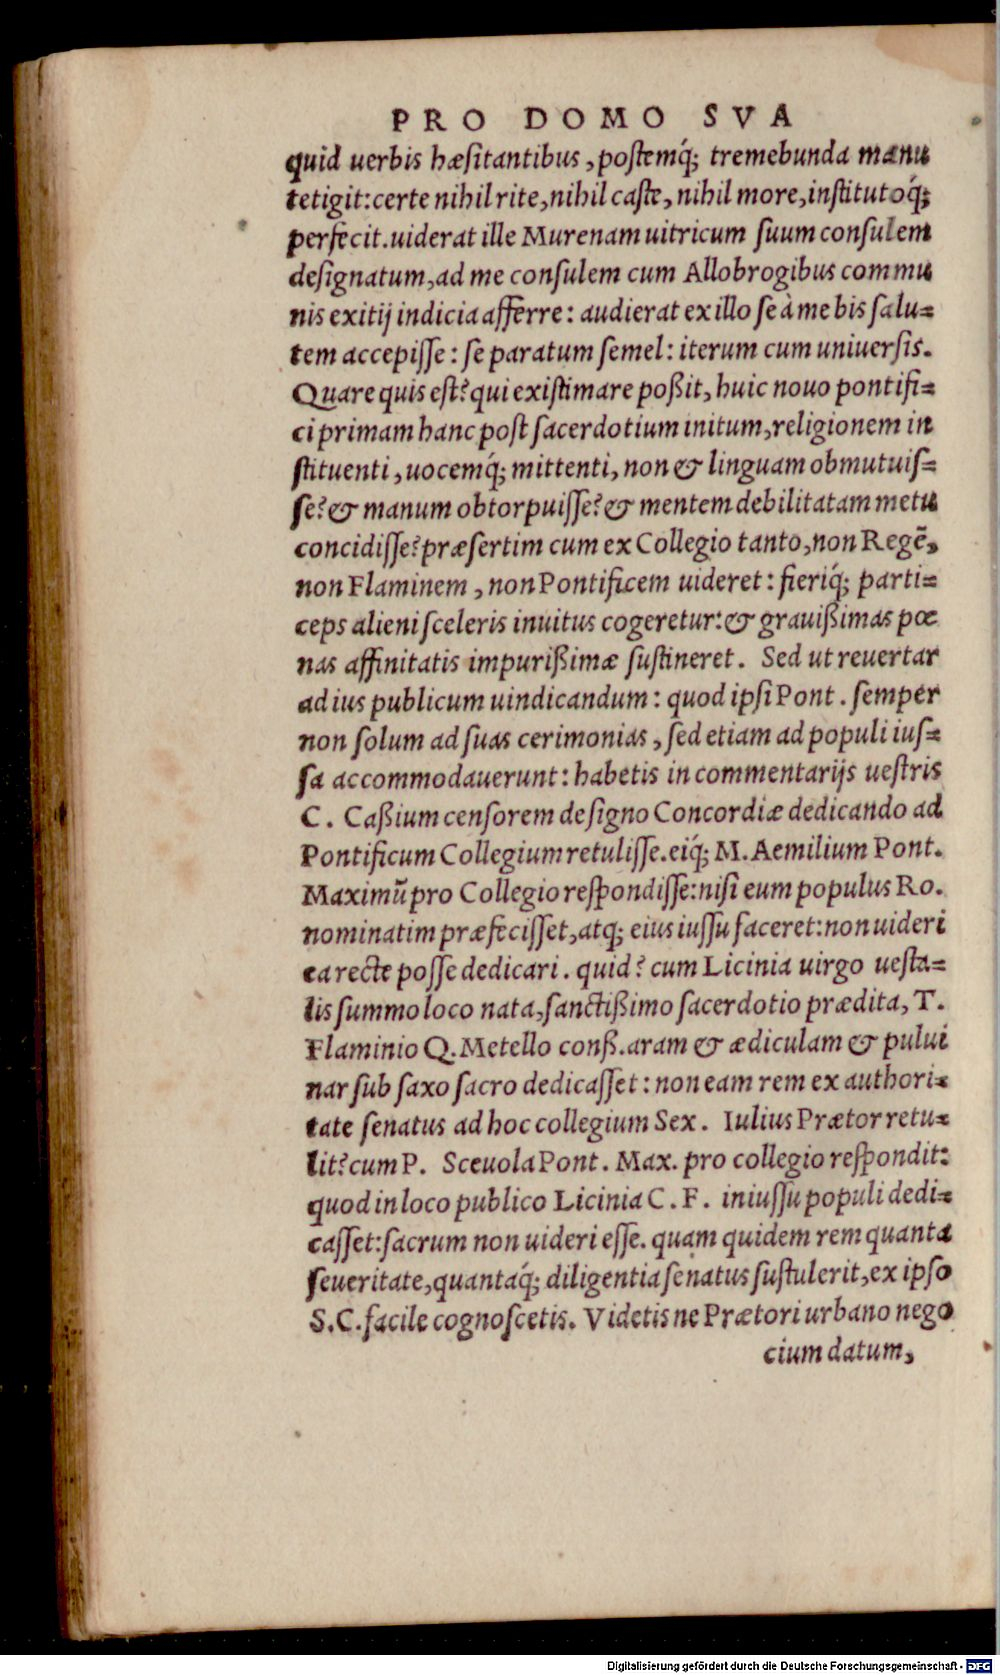 PRO DOMO SVA
quid uerbis hæſitantibus, poſtemq́; tremebunda manu
tetigit: certe nihil rite, nihil caſte, nihil more, inſtitutoq́;
perfecit. uiderat ille Murenam uitricum ſuum conſulem
deſignatum, ad me conſulem cum Allobrogibus commu
nis exitij indicia afferre: audierat ex illo ſe à me bis ſalu=
tem accepiſſe: ſe paratum ſemel: iterum cum uniuerſis.
Quare quis eſt? qui exiſtimare poßit, huic nouo pontifi=
ci primam hanc poſt ſacerdotium initum, religionem in
ſtituenti, uocemq́; mittenti, non & linguam obmutuiſ=
ſe? & manum obtorpuiſſe? & mentem debilitatam metu
concidiſſe? præſertim cum ex Collegio tanto, non Regẽ,
non Flaminem, non Pontificem uideret: fieriq́; parti=
ceps alieni ſceleris inuitus cogeretur: & grauißimas pœ
nas affinitatis impurißimæ ſuſtineret. Sed ut reuertar
ad ius publicum uindicandum: quod ipſi Pont. ſemper
non ſolum ad ſuas cerimonias, ſed etiam ad populi iuſ=
ſa accommodauerunt: habetis in commentarijs ueſtris
C. Caßium cenſorem de ſigno Concordiæ dedicando ad
Pontificum Collegium retuliſſe. eiq́; M. Aemilium Pont.
Maximũ pro Collegio reſpondiſſe: niſi eum populus Ro.
nominatim præfeciſſet, atq; eius iuſſu faceret: non uideri
ea recte poſſe dedicari. quid? cum Licinia uirgo ueſta=
lis ſummo loco nata, ſanctißimo ſacerdotio prædita, T.
Flaminio Q. Metello conß. aram & ædiculam & pului
nar ſub ſaxo ſacro dedicaſſet: non eam rem ex authori=
tate ſenatus ad hoc collegium Sex. Iulius Prætor retu=
lit? cum P. Sceuola Pont. Max. pro collegio reſpondit:
quod in loco publico Licinia C. F. iniuſſu populi dedi=
caſſet: ſacrum non uideri eſſe. quam quidem rem quanta
ſeueritate, quantaq́; diligentia ſenatus ſuſtulerit, ex ipſo
S.C. facile cognoſcetis. Videtis ne Prætori urbano nego
cium datum,
Digitalisierung gefördert durch die Deutsche Forschungsgemeinschaft - DFG